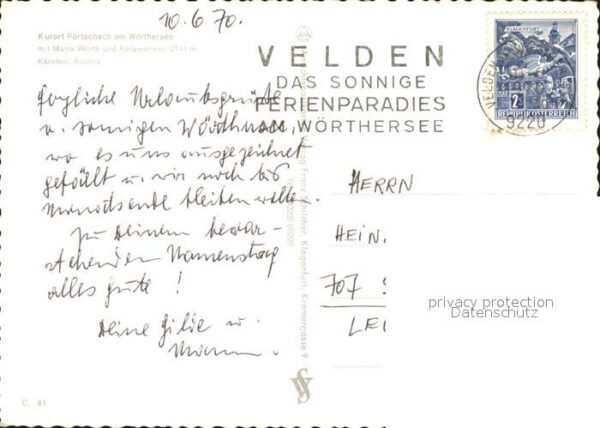 10.6.70.
Kurort Pörtschach am Wörthersee
mit Maria Wörth und Karawanken 2144 m
Kärnten, Austria
VELDEN
DAS SONNIGE
FERIENPARADIES
AM WÖRTHERSEE
KLAGENFURT
2
REPUBLIK ÖSTERREICH
VELDEN
9220
Herzliche Urlaubsgrüße
v. sonnigen Wörthersee,
wo es uns ausgezeichnet
gefällt u. wir noch bis
Monatsende bleiben wollen.
Zu Deinem bevor-
stehenden Namenstag
alles Gute!
Deine Hilde u.
Franz Schilcher, Klagenfurt, Kramergasse 9
HERRN
HEIN
707
LEI
privacy protection
Datenschutz
C. 61